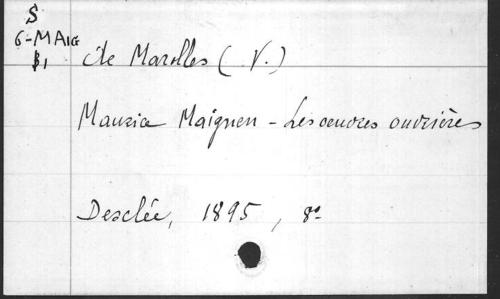 S
6-MAIG
B1
de Marolles (V.)
Maurice Maignen - Les oeuvres ouvrières
Desclée, 1895, 8°